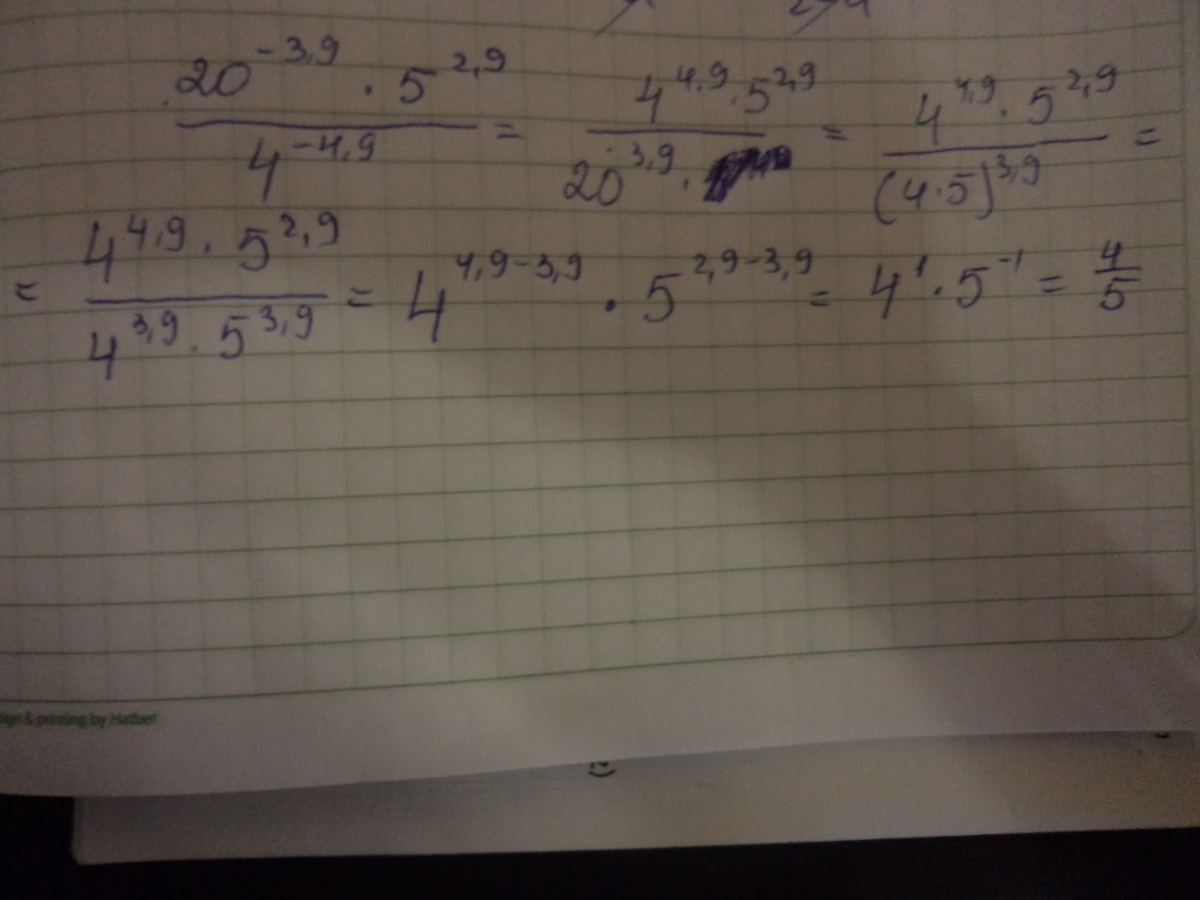 20^{-3,9} · 5^{2,9} / 4^{-4,9} = 4^{4,9} · 5^{2,9} / 20^{3,9} · = 4^{4,9} · 5^{2,9} / (4·5)^{3,9} =
= 4^{4,9} · 5^{2,9} / 4^{3,9} · 5^{3,9} = 4^{4,9-3,9} · 5^{2,9-3,9} = 4^1 · 5^{-1} = 4/5
& printing by Hatber